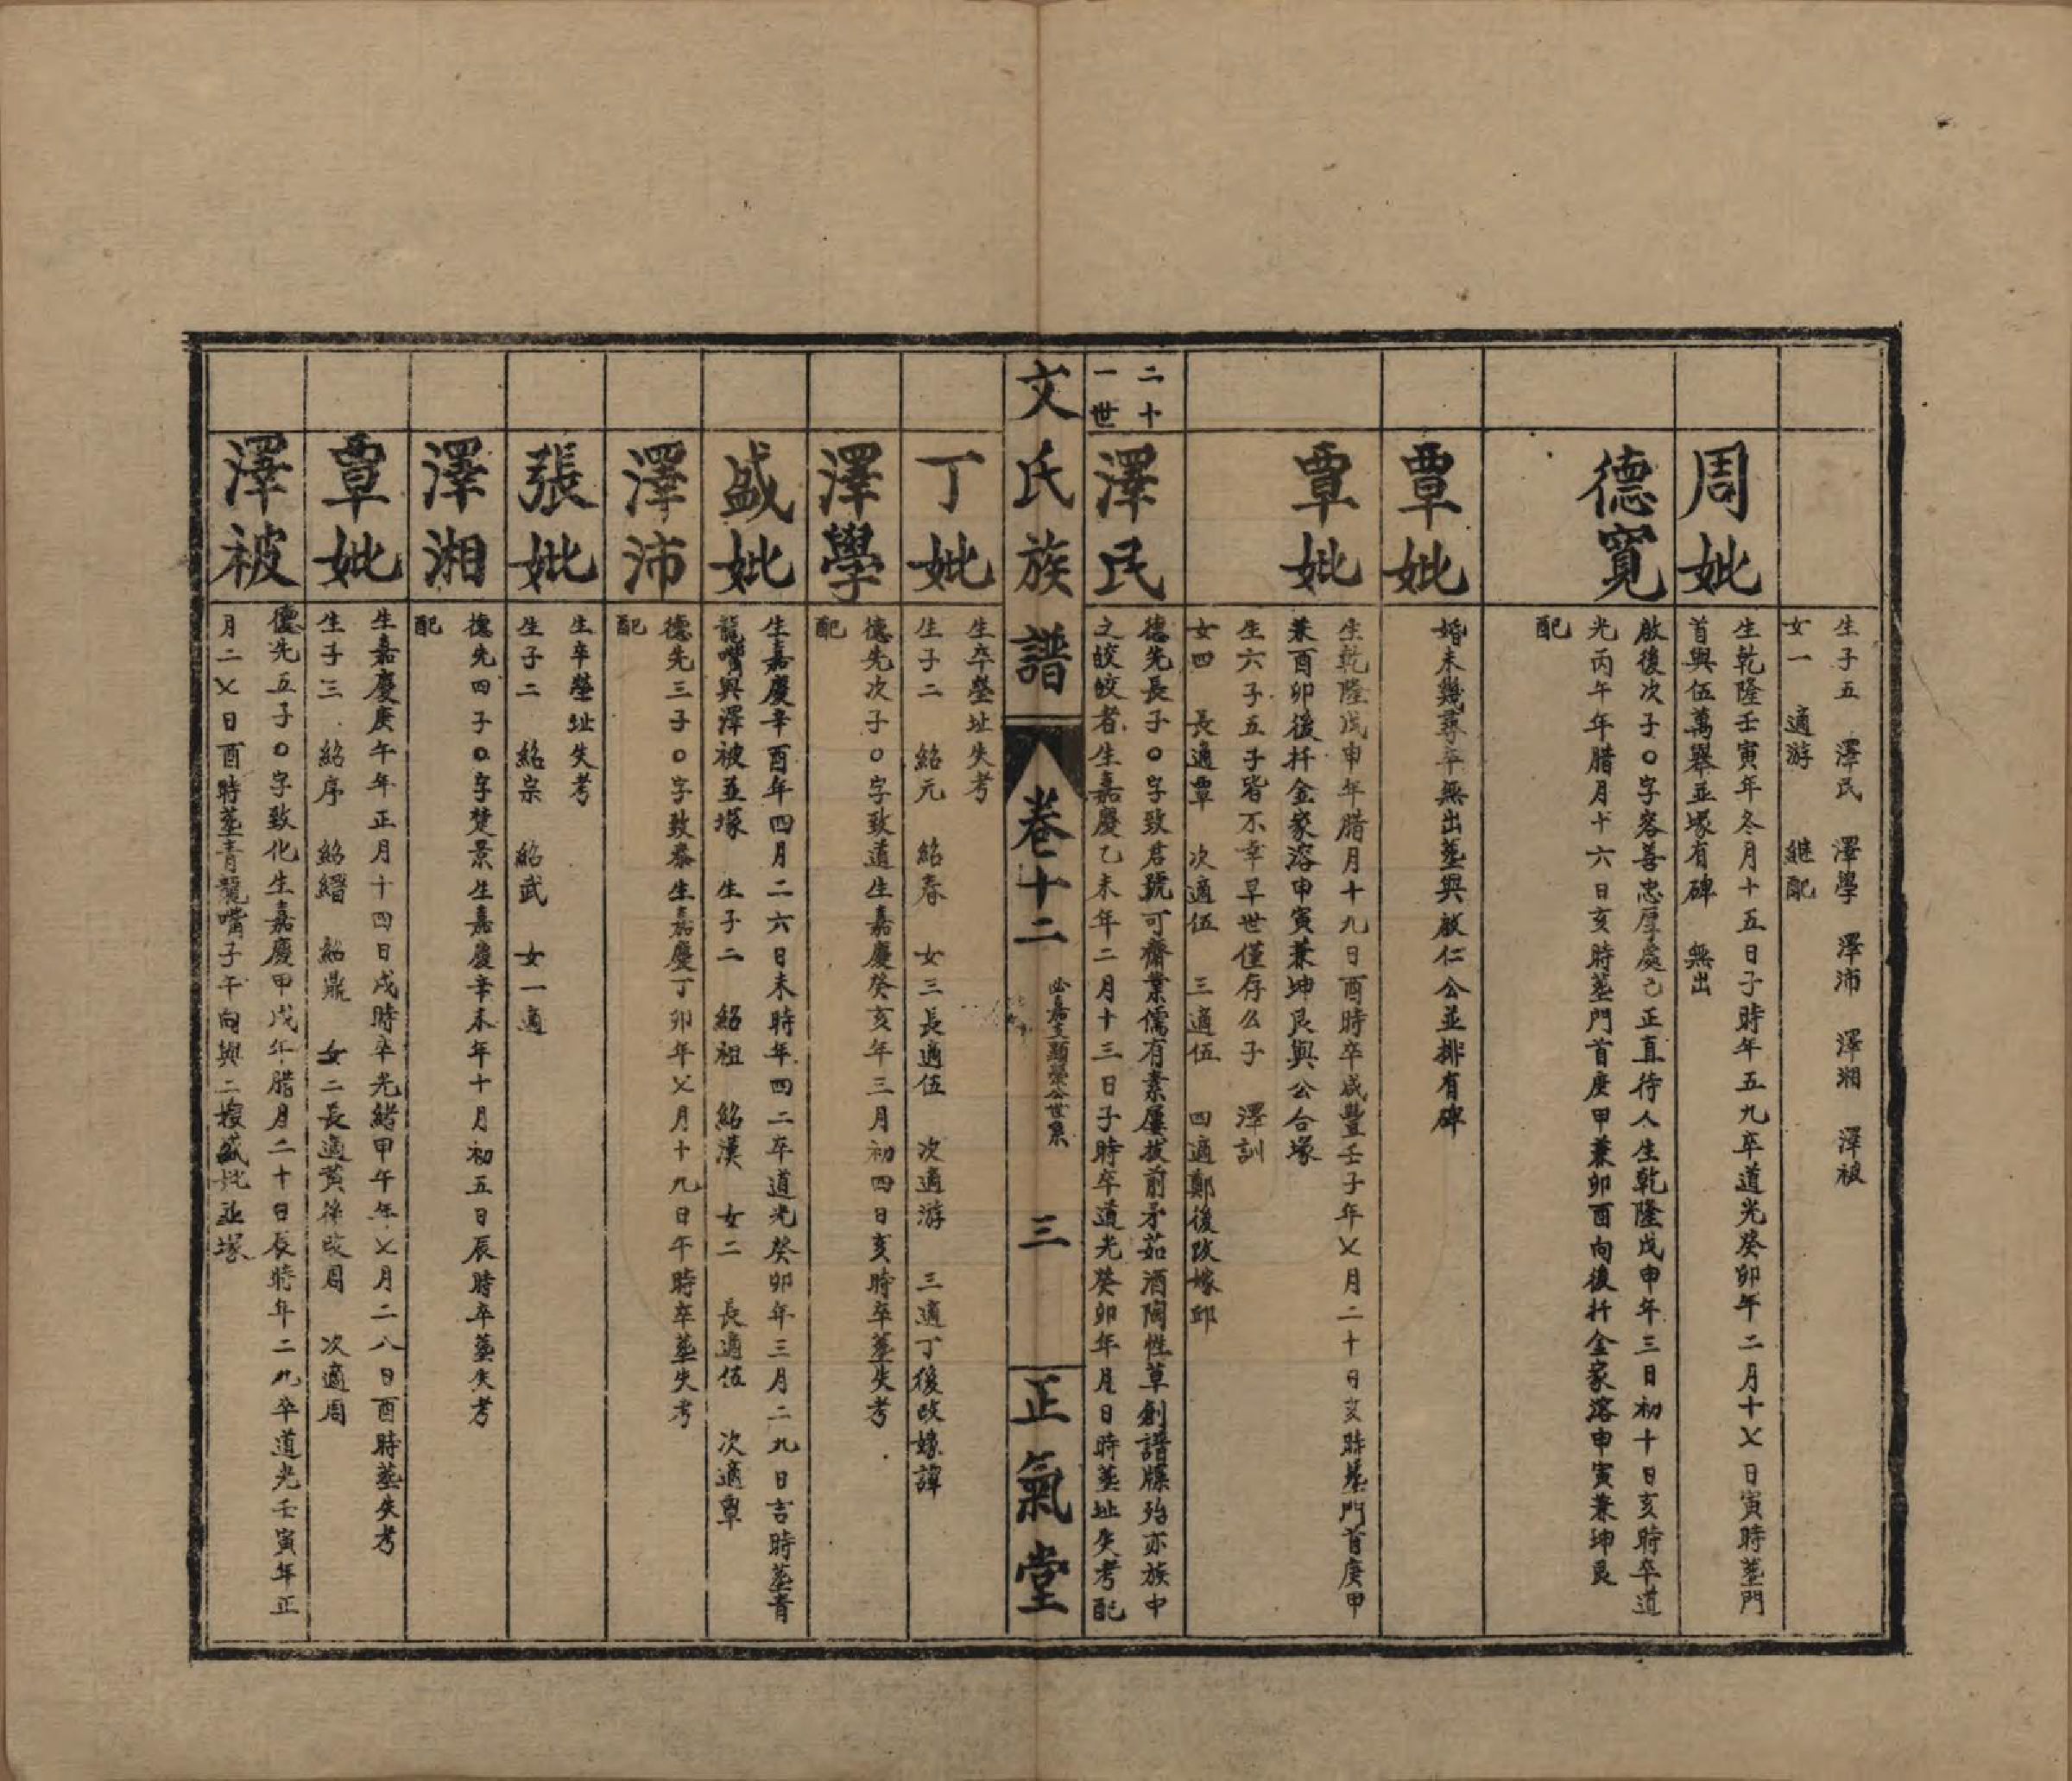 生子五 澤民 澤學 澤沛 澤湘 澤被
女一 適游 継配
周妣
生乾隆壬寅年冬月十五日子時年五九卒道光癸卯年二月十七日寅時塟門
首與伍萬舉並塚有碑 無出
德寬
啟後次子〇字容善忠厚處己正直待人生乾隆戊申年三日初十日亥時卒道
光丙午年腊月十六日亥時塟門首庚甲兼卯酉向後扦金家溶申寅兼坤艮
配
覃妣
婚未幾尋卒無出塟與啟仁公並排有碑
覃妣
生乾隆戊申年腊月十九日酉時卒咸豐壬子年乂月二十日亥時塟門首庚甲
兼酉卯後扦金家溶申寅兼坤艮與公合塚
生六子五子皆不幸早世僅存么子 澤訓
女四 長適覃 次適伍 三適伍 四適鄭後改嫁邱
二十
一世
澤民
德先長子〇字致君號可齋業儒有素屢拔前矛茹酒陶性草創譜牒殆亦族中
之皎皎者生嘉慶乙未年二月十三日子時卒道光癸卯年月日時塟址失考配
文氏族譜 卷十二 必嘉支顯榮公世系 三 正氣堂
丁妣
生卒塋址失考
生子二 紹元 紹春 女三長適伍 次適游 三適丁後改嫁譚
澤學
德先次子〇字致道生嘉慶癸亥年三月初四日亥時卒塟失考
配
盛妣
生嘉慶辛酉年四月二六日未時年四二卒道光癸卯年三月二九日吉時塟青
龍嘴與澤被並塚 生子二 紹祖 紹漢 女二 長適伍 次適覃
澤沛
德先三子〇字致泰生嘉慶丁卯年乂月十九日午時卒塟失考
配
張妣
生卒塋址失考
生子二 紹宗 紹武 女一適
澤湘
德先四子〇字楚景生嘉慶辛未年十月初五日辰時卒塟失考
配
覃妣
生嘉慶庚午年正月十四日戌時卒光緒甲午年乂月二八日酉時塟失考
生子三 紹序 紹縉 紹鼎 女二長適黃後改周 次適周
澤被
德先五子〇字致化生嘉慶甲戊年腊月二十日辰時年二九卒道光壬寅年正
月二乂日酉時塟青龍嘴子午向與二嫂盛妣並塚